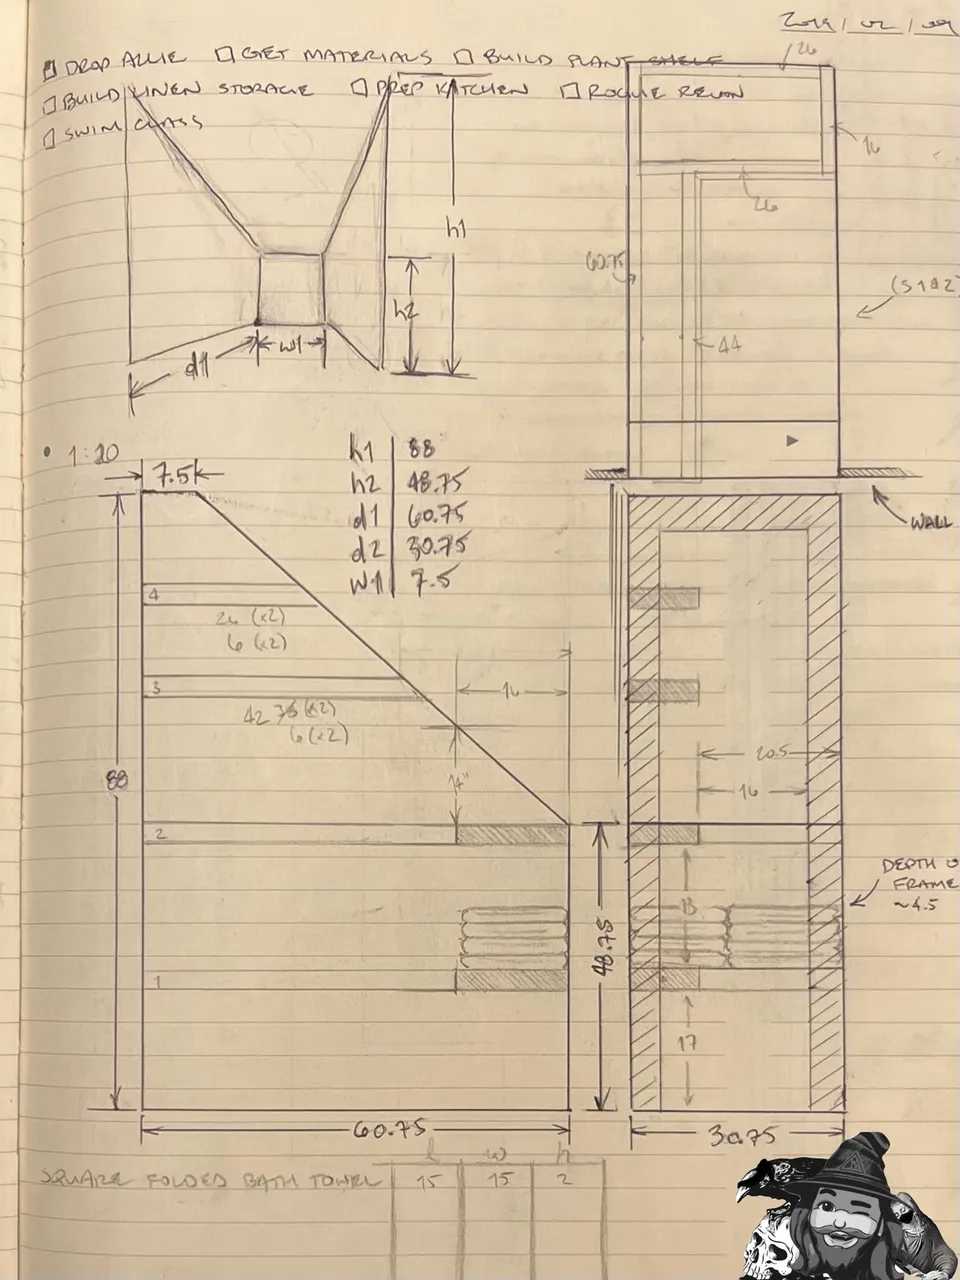 2019/02/09
DROP ALLIE □ GET MATERIALS □ BUILD PLANT SHELF
□ BUILD LINEN STORAGE □ PREP KITCHEN □ ROGUE RECON
□ SWIM CLASS
26
16
26
h1
60.75
(S1&2)
h2
44
w1
d1
• 1:20
7.5
h1 88
h2 48.75
d1 60.75
d2 30.75
w1 7.5
WALL
4
26 (x2)
6 (x2)
3
42.75 (x2)
6 (x2)
16
20.5
16
14"
88
2
DEPTH O
FRAME
~4.5
13
48.75
1
17
60.75
30.75
l w h
SQUARE FOLDED BATH TOWEL 15 15 2